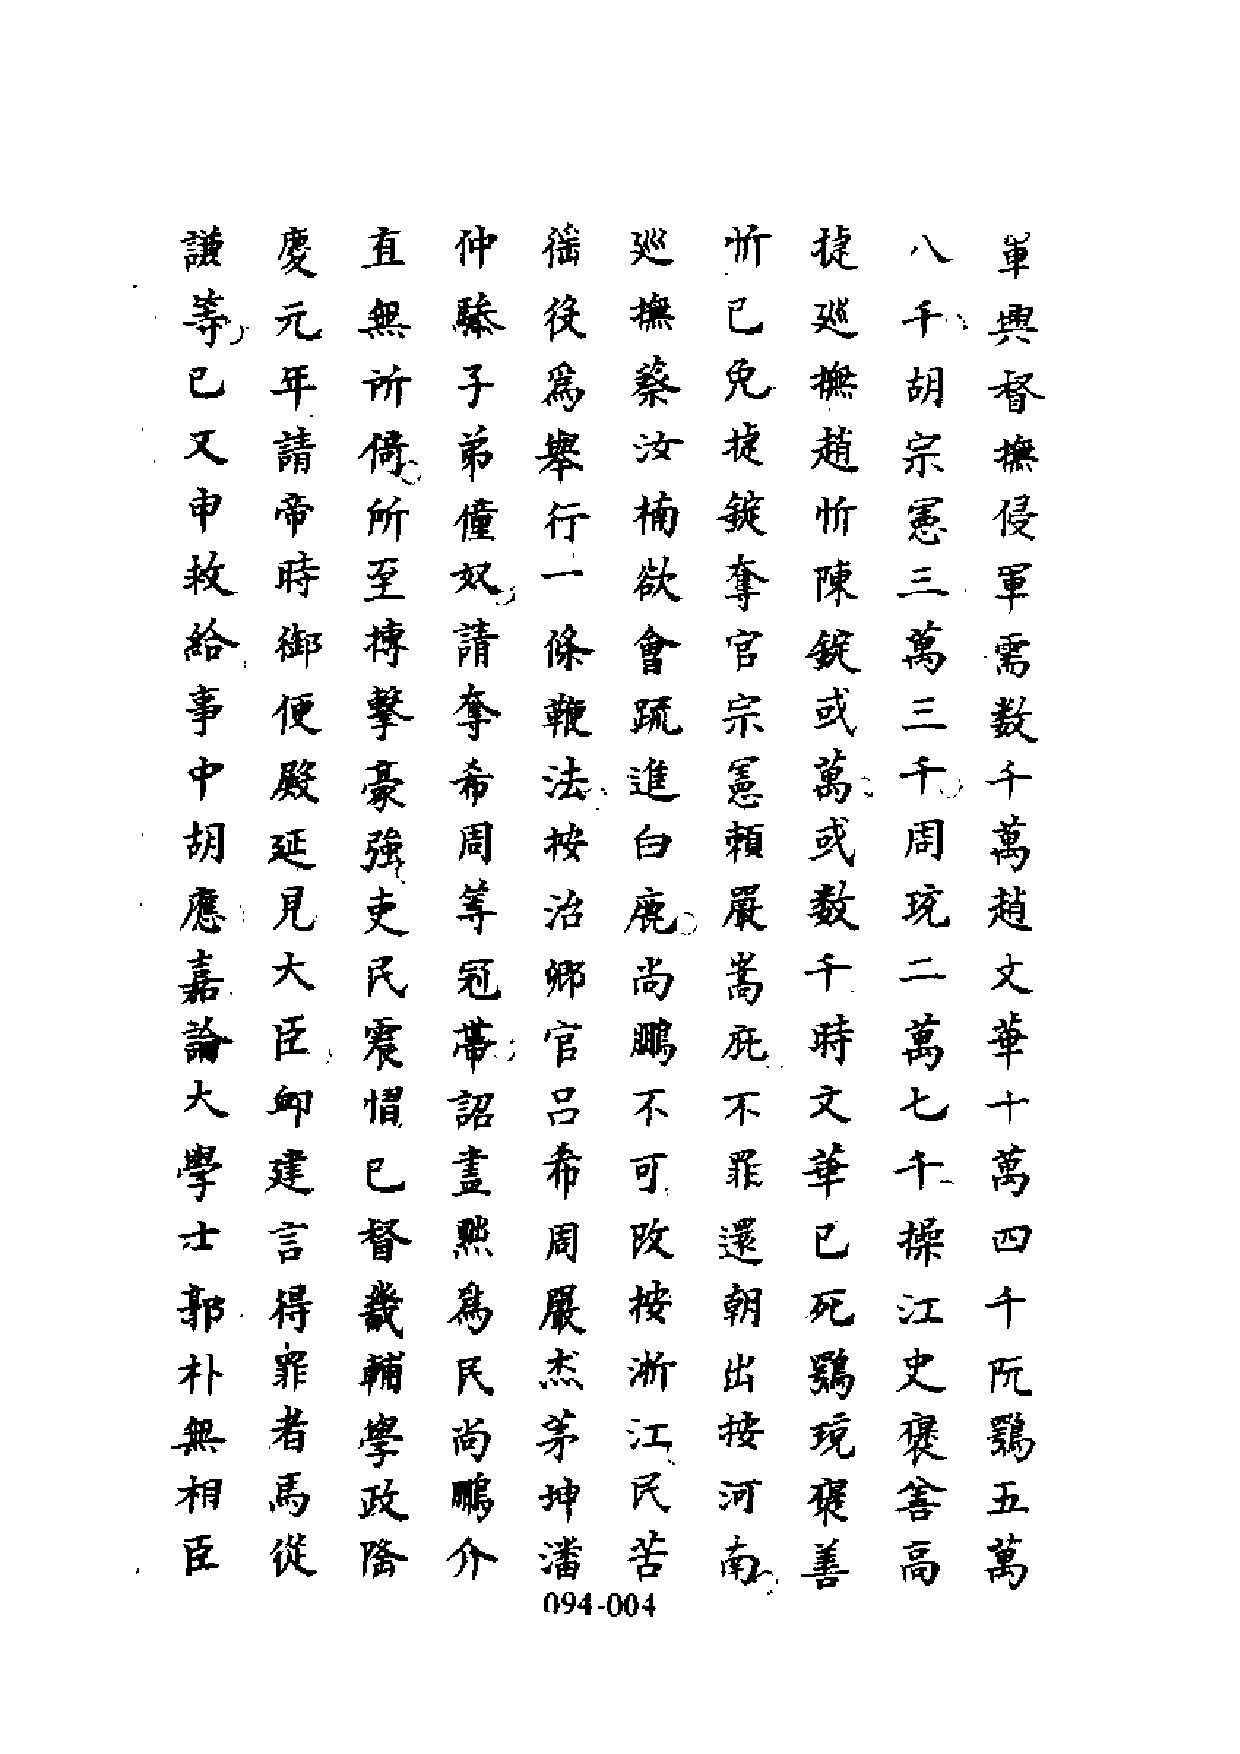 軍興督撫侵軍需数千萬趙文華十萬四千阮鶚五萬
八千胡宗憲三萬三千周珫二萬七千操江史褒善高
捷巡撫趙忻陳錠或萬或数千時文華已死鶚珫褒善
忻已免捷錠奪官宗憲賴嚴嵩庇不罪還朝出按河南
巡撫蔡汝楠欲會疏進白鹿尚鵬不可改按淅江民苦
徭役爲舉行一條鞭法按治鄉官呂希周嚴杰茅坤潘
仲驂子弟僮奴請奪希周等冠帶詔盡黜爲民尚鵬介
直無所倚所至搏擊豪強吏民震慴已督畿輔學政隆
慶元年請帝時御便殿延見大臣卹建言得罪者馬從
謙等已又申救給事中胡應嘉論大學士郭朴無相臣
094-004